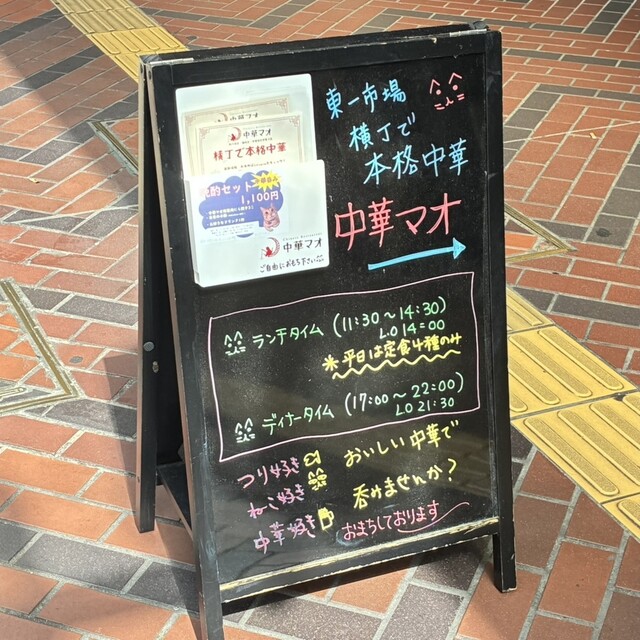 東一市場
横丁で
本格中華
中華マオ
中華マオ
横丁で本格中華
晩酌セット
1,100円
中華マオ
ご自由におもち下さい
ランチタイム (11:30～14:30)
L.O 14:00
※平日は定食4種のみ
ディナータイム (17:00～22:00)
LO 21:30
つり好き
ねこ好き
中華好き
おいしい中華で
呑みませんか?
おまちしております